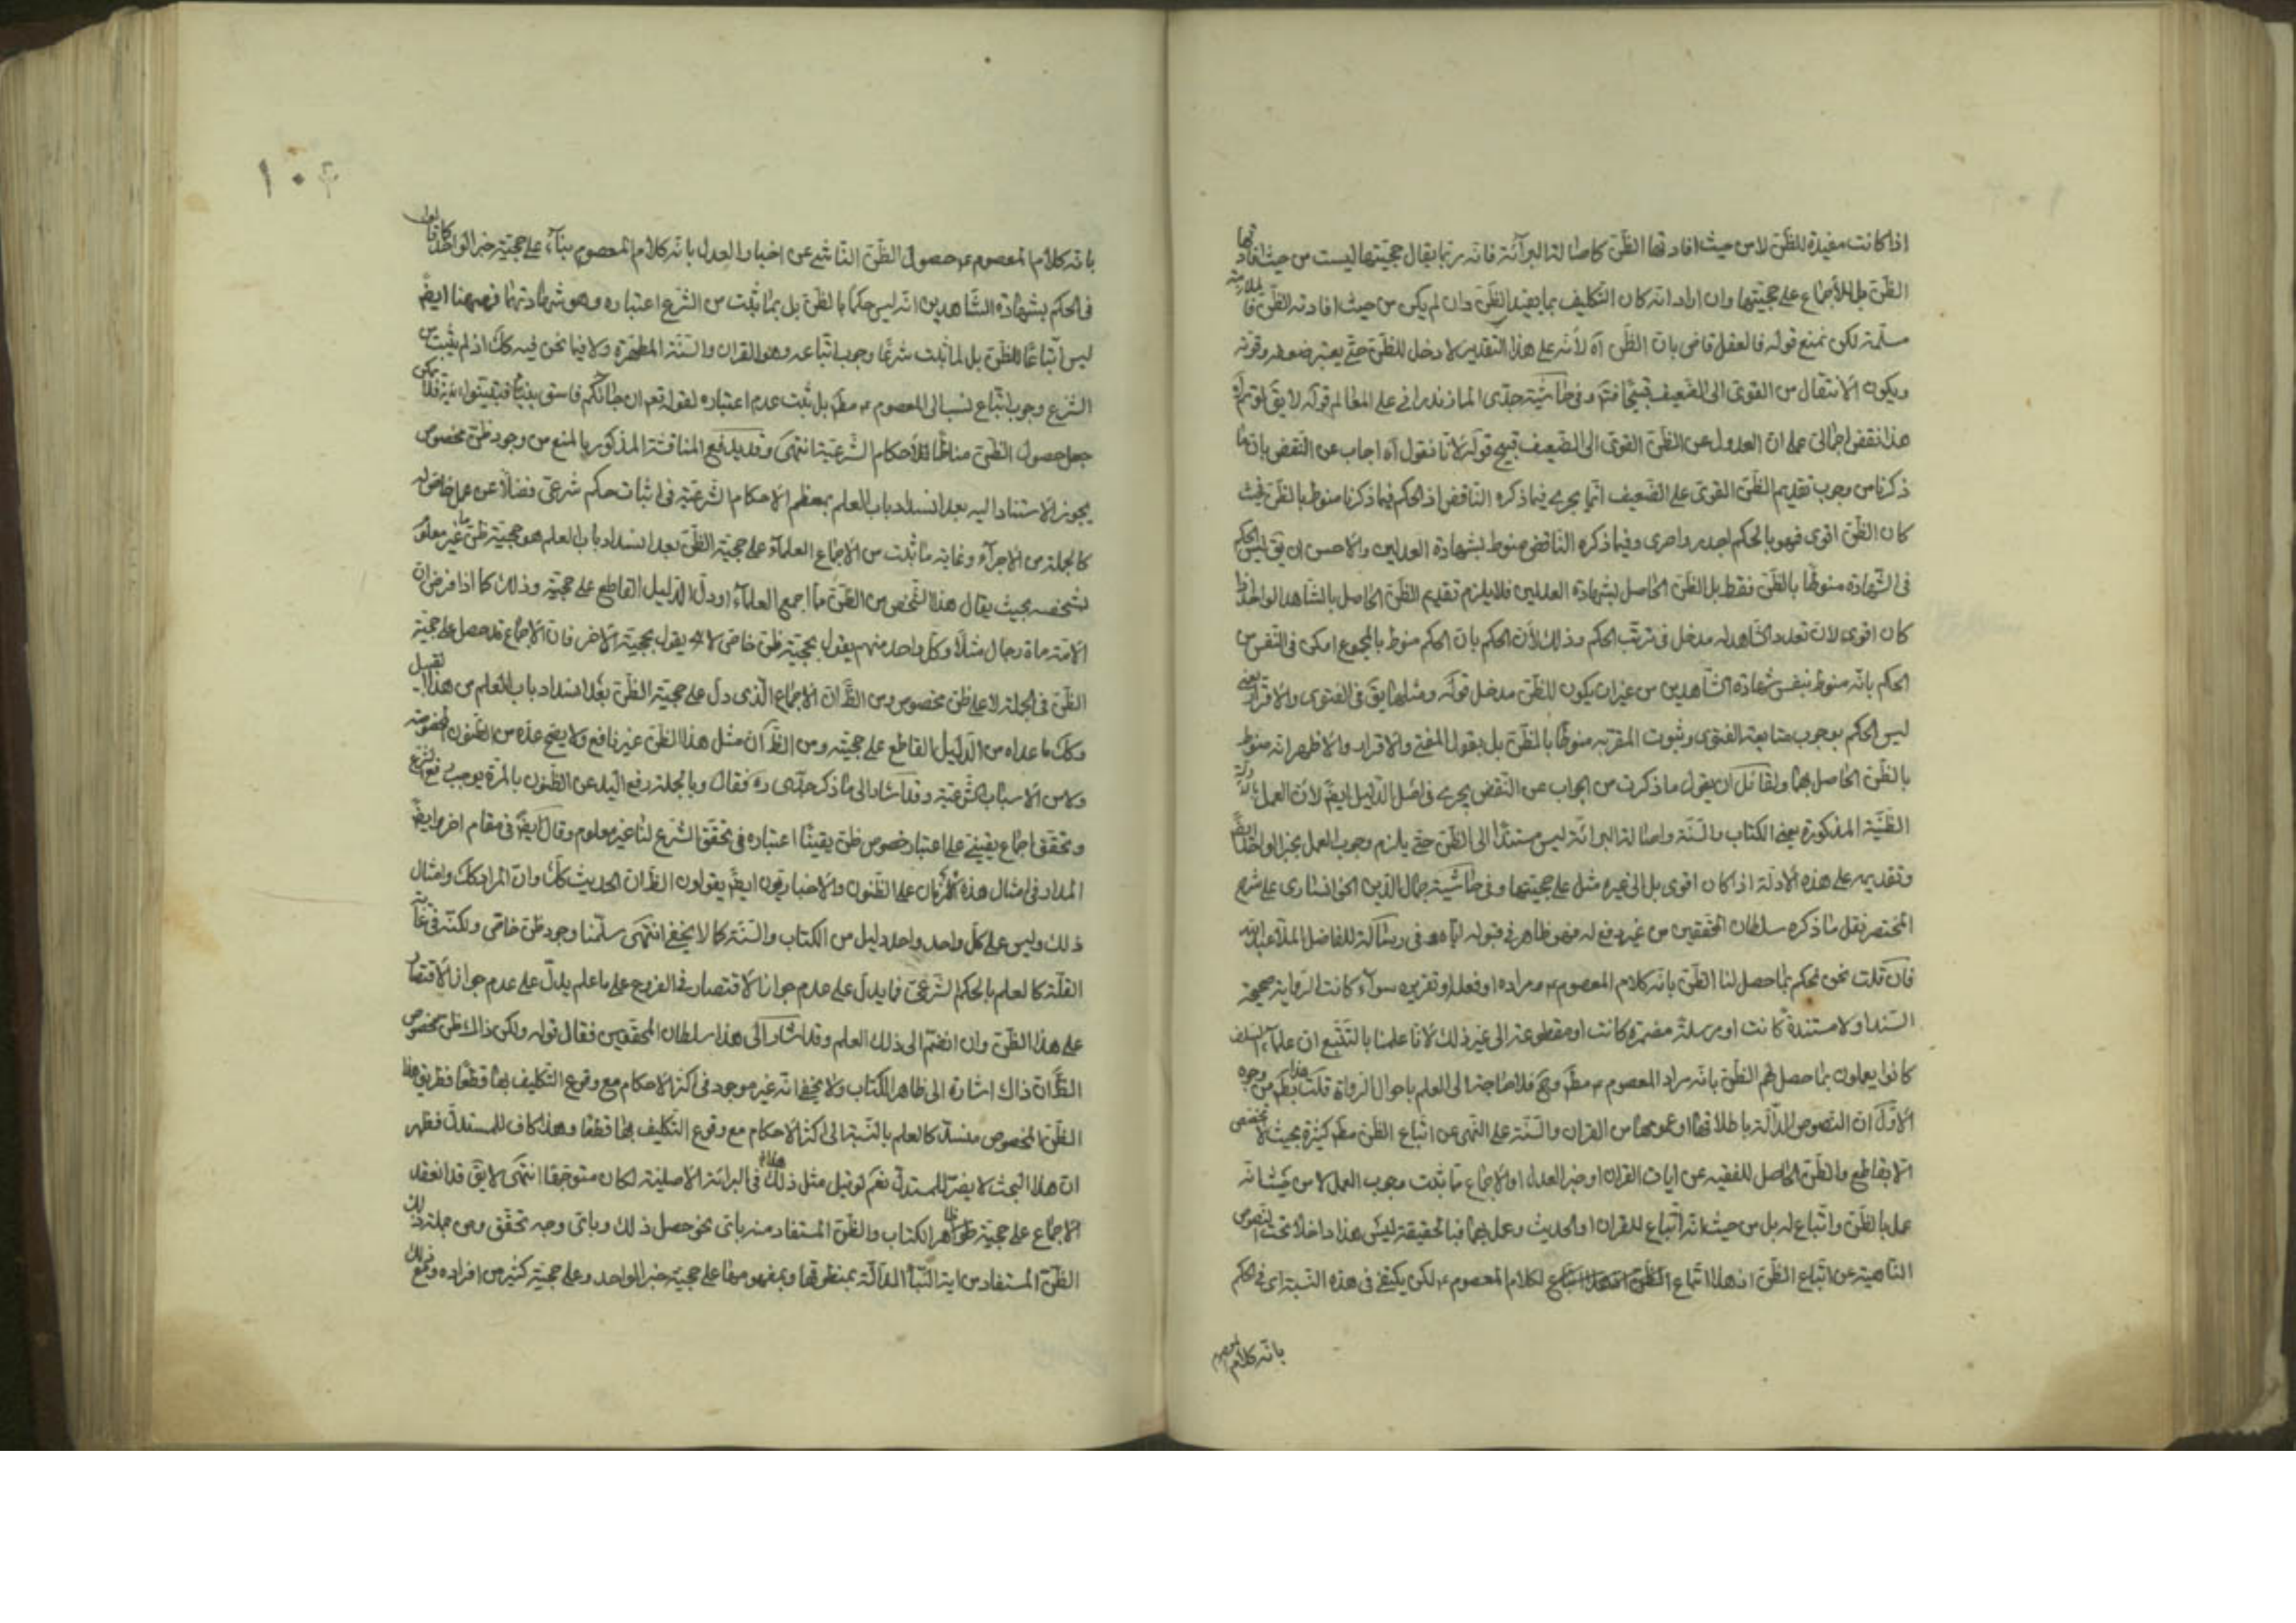 اذا كانت مفيدة للظن لا من حيث افادتها الظن كاصالة البرآئة فانه ربما يقال حجيتها ليست من حيث افادتها
الظن بل للاجماع على حجيتها وان اراد انه كان التكليف بما يفيد الظن وان لم يكن من حيث افادته الظن فالملازمة
مسلمة لكن نمنع قوله فالعقل قاض بان الظن آه لأنه على هذا التقدير لا دخل للظن حتى يعتبر ضعفه وقوته
ويكون الانتقال من القوى الى الضعيف قبيحا فتم وفى حاشية جدى المازندرانى على المعالم قوله لا يق لو تم آه
هذا نقض اجمالى على ان العدول عن الظن القوى الى الضعيف قبيح قوله لانا نقول آه اجاب عن النقض بان ما
ذكرنا من وجوب تقديم الظن القوى على الضعيف انما يجرى فيما ذكره الناقض اذ الحكم فيما ذكرنا منوط بالظن فحيث
كان الظن اقوى فهو بالحكم اجدر واحرى وفيما ذكره الناقض منوط بشهادة العدلين والاحسن ان يق ليس الحكم
فى الشهادة منوطا بالظن فقط بل الظن الحاصل بشهادة العدلين فلا يلزم تقديم الظن الحاصل بالشاهد الواحد اذا
كان اقوى لان تعدد الشاهد له مدخل فى ترتب الحكم وذلك لأن الحكم بان الحكم منوط بالمجموع امكن فى النفس من
الحكم بانه منوط بنفس شهادة الشاهدين من غير ان يكون للظن مدخل قوله ومثلها يق فى الفتوى والاقرار يعنى
ليس الحكم بوجوب متابعة الفتوى وثبوت المقر به منوطا بالظن بل بقول المفتى والاقرار والاظهر انه منوط
بالظن الحاصل بهما ولقائل ان يقول ما ذكرت من الجواب عن النقض يجرى فى اصل الدليل ايضً لأن العمل بالادلة
الظنية المذكورة يعنى الكتاب والسنة واصالة البرائة ليس مستندا الى الظن حتى يلزم وجوب العمل بخبر الواحد ايضً
وتقديمه على هذه الأدلة اذا كان اقوى بل الى غيره مثل على حجيتها وفى حاشية جمال الدين الخوانسارى على شرح
المختصر نقل ما ذكره سلطان المحققين من غير دفع له فهو ظاهر فى قبوله اياه وفى رسالة للفاضل الملا عبد الله
فان قلت نحن نحكم بما حصل لنا الظن بانه كلام المعصوم ع مراده او فعله او تقريره سوآء كانت الرواية صحيحة
السند او لا مستندة كانت او مرسلة مضمرة كانت او مقطوعة الى غير ذلك لأنا علمنا بالتتبع ان علمآء السلف
كانوا يعملون بما حصل لهم الظن بانه مراد المعصوم ع مطً وح فلا حاجة الى العلم باحوال الرواة قلت هذا بطً من وجوه
الاول ان النصوص الدالة باطلاقها او عمومها من القران والسنة على النهى عن اتباع الظن مطً كثيرة بحيث لا تخصص
الا بقاطع والظن الحاصل للفقيه عن ايات القران او خبر العدل او الاجماع مما ثبت وجوب العمل لا من حيث انه
عمل بالظن واتباع له بل من حيث انه اتباع للقران او الحديث وعمل بهما فبالحقيقة ليس هذا داخلا تحت النصوص
الناهية عن اتباع الظن اذ هذا اتباع لكلام المعصوم ع لكن يكتفى فى هذه النسبة اى فى الحكم
بانه كلام المعصوم
١٠٤
بانه كلام المعصوم ع حصول الظن الناشى عن اخبار العدل بانه كلام المعصوم بناء على حجية خبر الواحد كما نقول
فى الحكم بشهادة الشاهدين انه ليس حكما بالظن بل بما ثبت من الشرع اعتباره وهو شهادتهما فههنا ايضً
ليس اتباعا للظن بل لما ثبت شرعا وجوب اتباعه وهو القران والسنة المطهرة ولا فيما نحن فيه كك اذ لم يثبت من
الشرع وجوب اتباع نسب الى المعصوم ع مطً بل ثبت عدم اعتباره لقوله تعم ان جائكم فاسق بنبأ فتبينوا فلا يمكن
جعل حصول الظن مناطا للأحكام الشرعية انتهى وقد يدفع المناقشة المذكورة بالمنع من وجود ظن مخصوص
يجوز الاستناد اليه بعد انسداد باب العلم بمعظم الاحكام الشرعية فى اثبات حكم شرعى فضلا عن عمل خاص له
كالجملة من الاجرآء وغاية ما ثبت من الاجماع العلمآء على حجية الظن بعد انسداد باب العلم هو حجية ظن ما غير معلوم
لشخصه بحيث يقال هذا الشخص من الظن مما اجمع العلمآء او دل الدليل القاطع على حجيته وذلك كما اذا فرض ان
الامة ماة رجال مثلا وكل واحد منهم يقول بحجية ظن خاص لا يقول بحجية الآخر فان الاجماع قد حصل على حجية
الظن فى الجملة لا على ظن مخصوص ومن الظً ان الاجماع الذى دل على حجية الظن بعد انسداد باب العلم من هذا القبيل
وكك ما عداه من الدليل القاطع على حجيته ومن الظً ان مثل هذا الظن غير نافع ولا يصح عده من الظنون المخصوصة
ولا من الأسباب الشرعية وقد اشار الى ما ذكر جدى ره فقال وبالجملة رفع اليد عن الظنون بالمرة يوجب رفع الشرع
وتحقق اجماع يقينى على اعتبار خصوص ظن يقينا اعتباره فى تحقق الشرع لنا غير معلوم وقال ايضً فى مقام اخر ايضً
المدار فى امثال هذه الازمان على الظنون والاخباريون ايضً يقولون الظً ان الحديث كك وان المراد كك وامثال
ذلك وليس على كل واحد واحد دليل من الكتاب والسنة كما لا يخفى انتهى سلمنا وجود ظن خاص ولكنه فى غاية
القلة كالعلم بالحكم الشرعى فما يدل على عدم جواز الاقتصار فى الفروع على ما علم يدل على عدم جواز الاقتصار
على هذا الظن وان انضم الى ذلك العلم وقد اشار الى هذا سلطان المحققين فقال قوله ولكن ذاك ظن مخصوص
الظً ان ذاك اشارة الى ظاهر الكتاب ولا يخفى انه غير موجود فى اكثر الاحكام مع وقوع التكليف بها قطعا فطريق هذا
الظن المخصوص منسد كالعلم بالنسبة الى اكثر الاحكام مع وقوع التكليف بها قطعا وهذا كاف للمستدل فظهر
ان هذا البحث لا يضر للمستدل نعم لو قيل مثل ذلك فى البرائة الاصلية لكان متوجها انتهى لا يق قد انعقد
الاجماع على حجية ظواهر الكتاب والظن المستفاد منه باى نحو حصل ذلك وباى وجه تحقق ومن جملة ذلك
الظن المستفاد من اية النبأ الدالة بمنطوقها وبمفهومها على حجية خبر الواحد وعلى حجية كثير من افراده